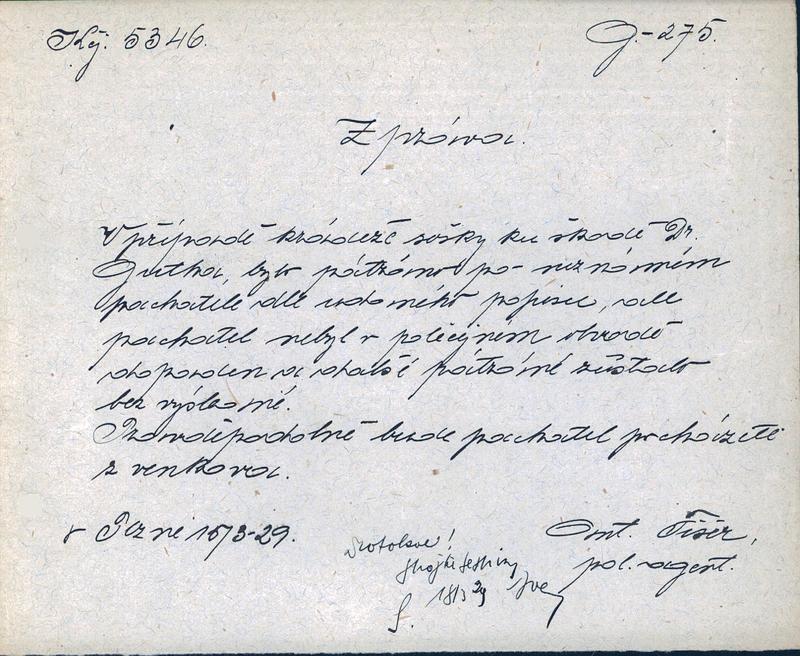 Kÿ. 5346.
G-275.
Zpráva.
V případě krádeže sošky ku škodě Dr.
Gutha, bylo pátráno po neznámém
pachateli dle udaného popisu, ale
pachatel nebyl v policejním obvodě
dopaden a další pátrání zůstalo
bez výsledné.
Pravděpodobně bude pachatel pocházeti
z venkova.
v Plzni 15/3-29.
Ant. Fišer,
pol. agent.
18/3 29